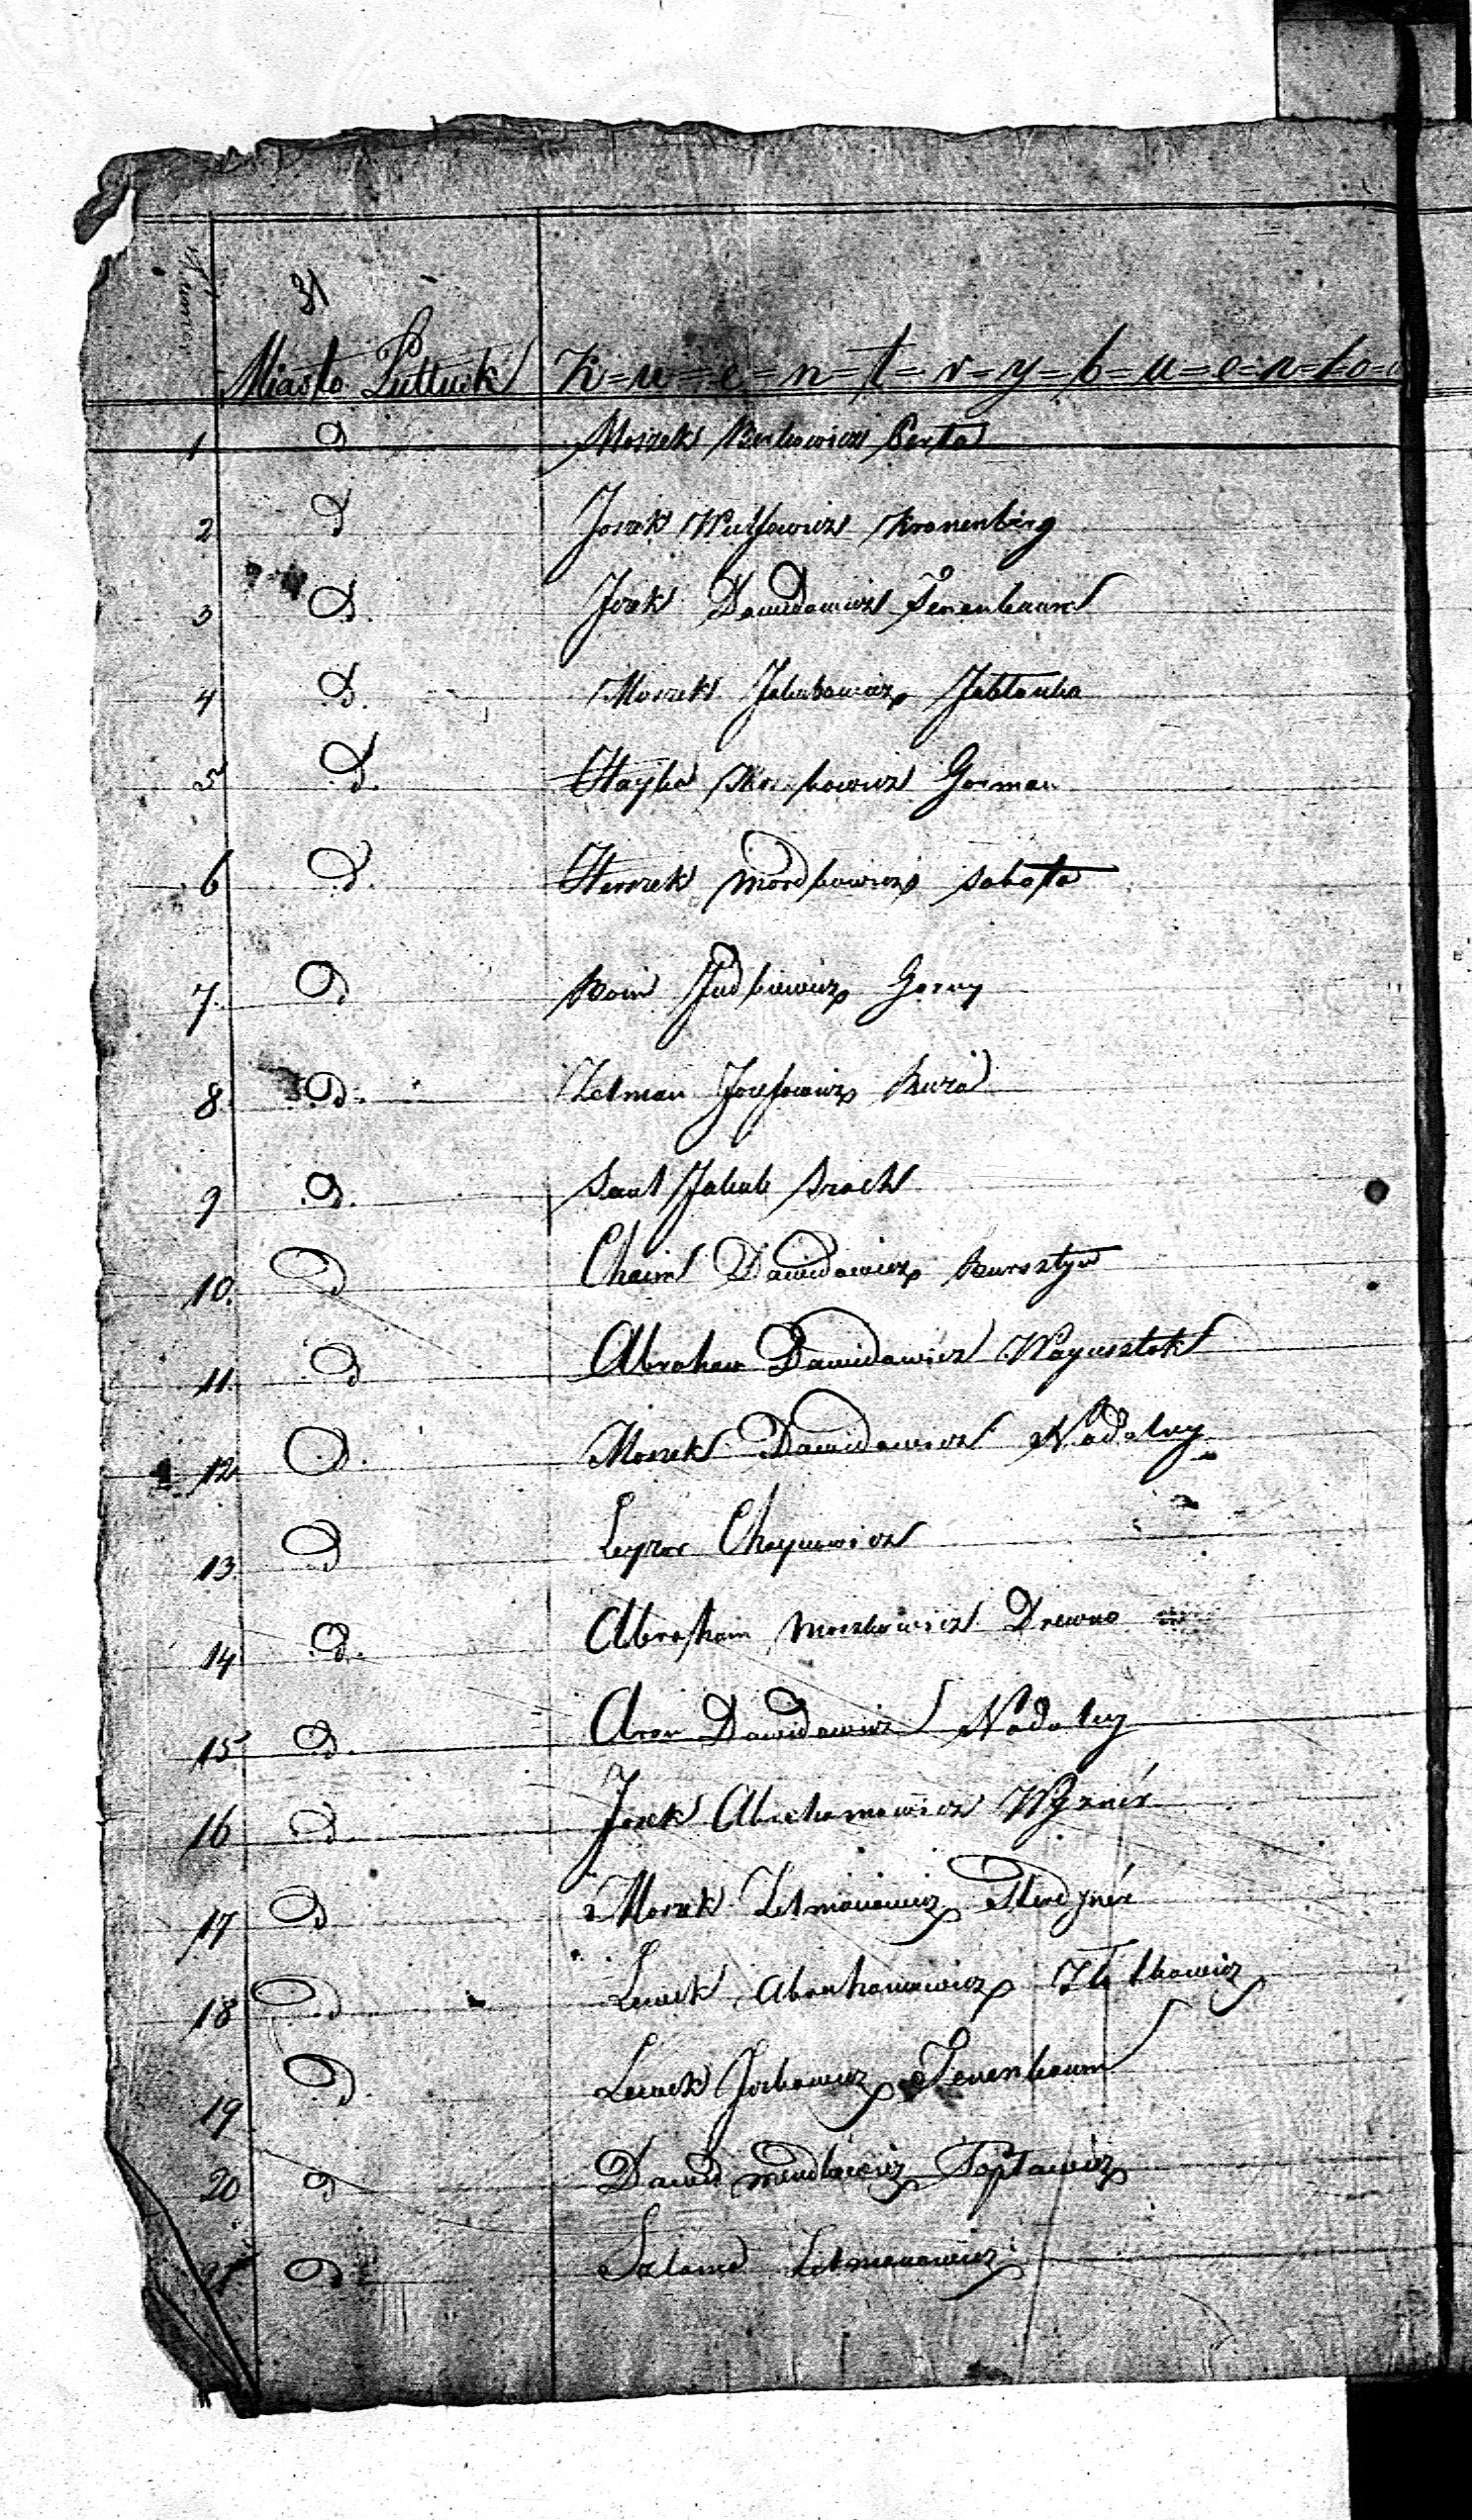 Numer
31
Miasto Pułtusk K=w=e=n=t=r=y=b=u=e=n=t=o=
1 d Moszek Berkowicz Perła
2 d Joszek Wulfowicz Kronenberg
3 d. Josk Dawidowicz Tenenbaum
4 d. Moszek Jakubowicz Jabłonka
5 d. Gorman
6 d. Herszek Mordkowicz Sobota
7. d Judkiewicz Gorny
8 d. Zelman Josefowicz Buza
9 d. Saul Jakub
10. d Chaim Dawidowicz Bursztyn
11. d Abraham Dawidowicz Waynsztok
12 d. Moszek Dawidowicz Nadolny
13. d Leyzor Chaymowicz
14 d. Abraham Moszkowicz Drewno
15 d. Aron Dawidowicz Nadolny
16 d Josek Abrahamowicz
17 d Moszek Zelmanowicz
18 d Lewek Abrahamowicz
19 d. Lewek Joskowicz Tenenbaum
20 d Dawid Mendlowicz
21 d Szlama Zelmanowicz